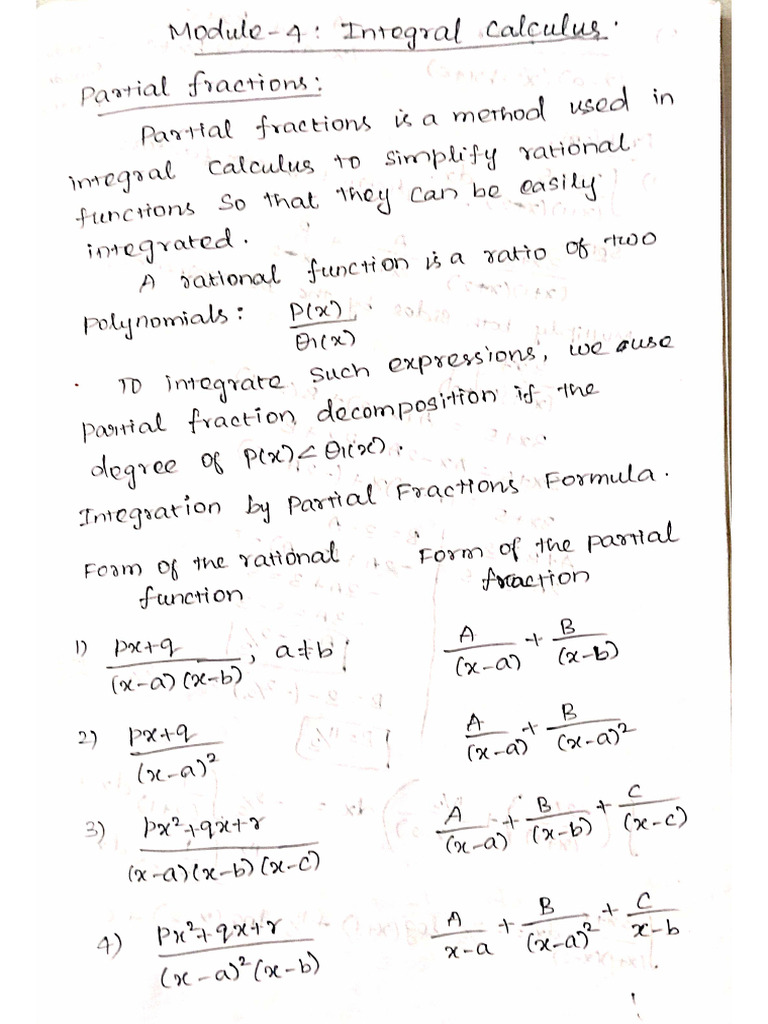 Module-4: Integral Calculus.
Partial fractions:
Partial fractions is a method used in
integral calculus to simplify rational
functions so that they can be easily
integrated.
A rational function is a ratio of two
polynomials: P(x)/Q(x)
To integrate such expressions, we use
partial fraction decomposition if the
degree of P(x) < Q(x).
Integration by Partial Fractions Formula.
Form of the rational function    Form of the partial fraction
1) (px+q)/((x-a)(x-b)), a≠b    A/(x-a) + B/(x-b)
2) (px+q)/(x-a)²    A/(x-a) + B/(x-a)²
3) (px²+qx+r)/((x-a)(x-b)(x-c))    A/(x-a) + B/(x-b) + C/(x-c)
4) (px²+qx+r)/((x-a)²(x-b))    A/(x-a) + B/(x-a)² + C/(x-b)